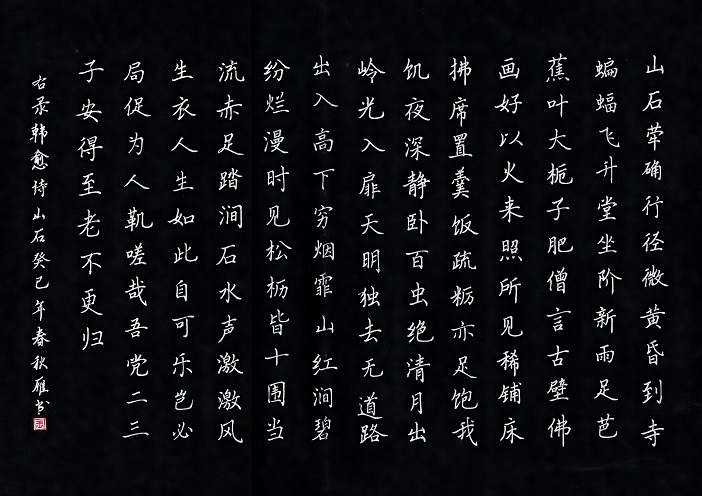 山石荦确行径微黄昏到寺
蝙蝠飞升堂坐阶新雨足芭
蕉叶大栀子肥僧言古壁佛
画好以火来照所见稀铺床
拂席置羹饭疏粝亦足饱我
饥夜深静卧百虫绝清月出
岭光入扉天明独去无道路
出入高下穷烟霏山红涧碧
纷烂漫时见松枥皆十围当
流赤足踏涧石水声激激风
生衣人生如此自可乐岂必
局促为人嗟哉吾党二三
子安得至老不更归
右录韩愈诗山石癸巳年春秋雁书